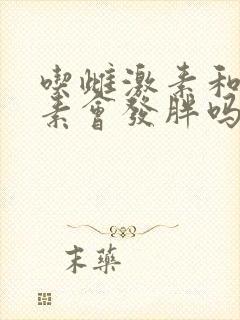 喫雌激素和
素會發胖吗
末藥